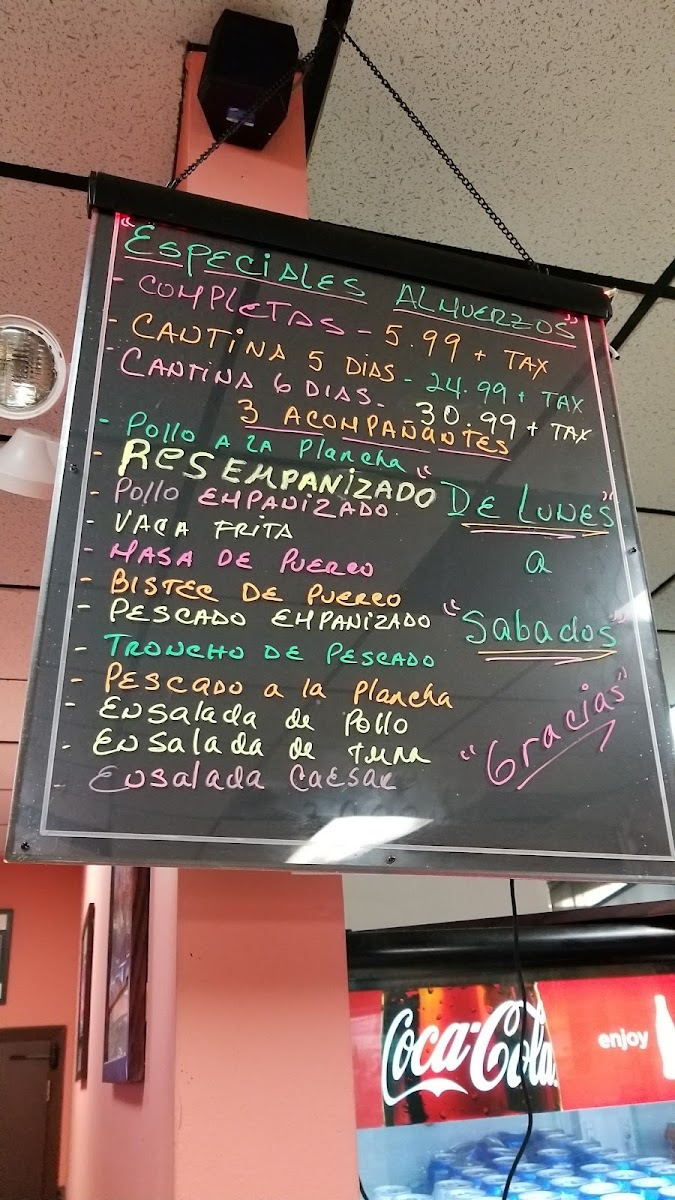 "Especiales Almuerzos"
- Completas - 5.99 + TAX
- Cantina 5 Dias - 24.99 + TAX
- Cantina 6 Dias - 30.99 + TAX
3 Acompañantes
- Pollo a la Plancha
- Res Empanizado
- Pollo Empanizado
- Vaca Frita
- Masa de Puerco
- Bistec de Puerco
- Pescado Empanizado
- Troncho de Pescado
- Pescado a la Plancha
- Ensalada de Pollo
- Ensalada de Tuna
- Ensalada Caesar
"De Lunes"
a
"Sabados"
"Gracias"
Coca-Cola
enjoy